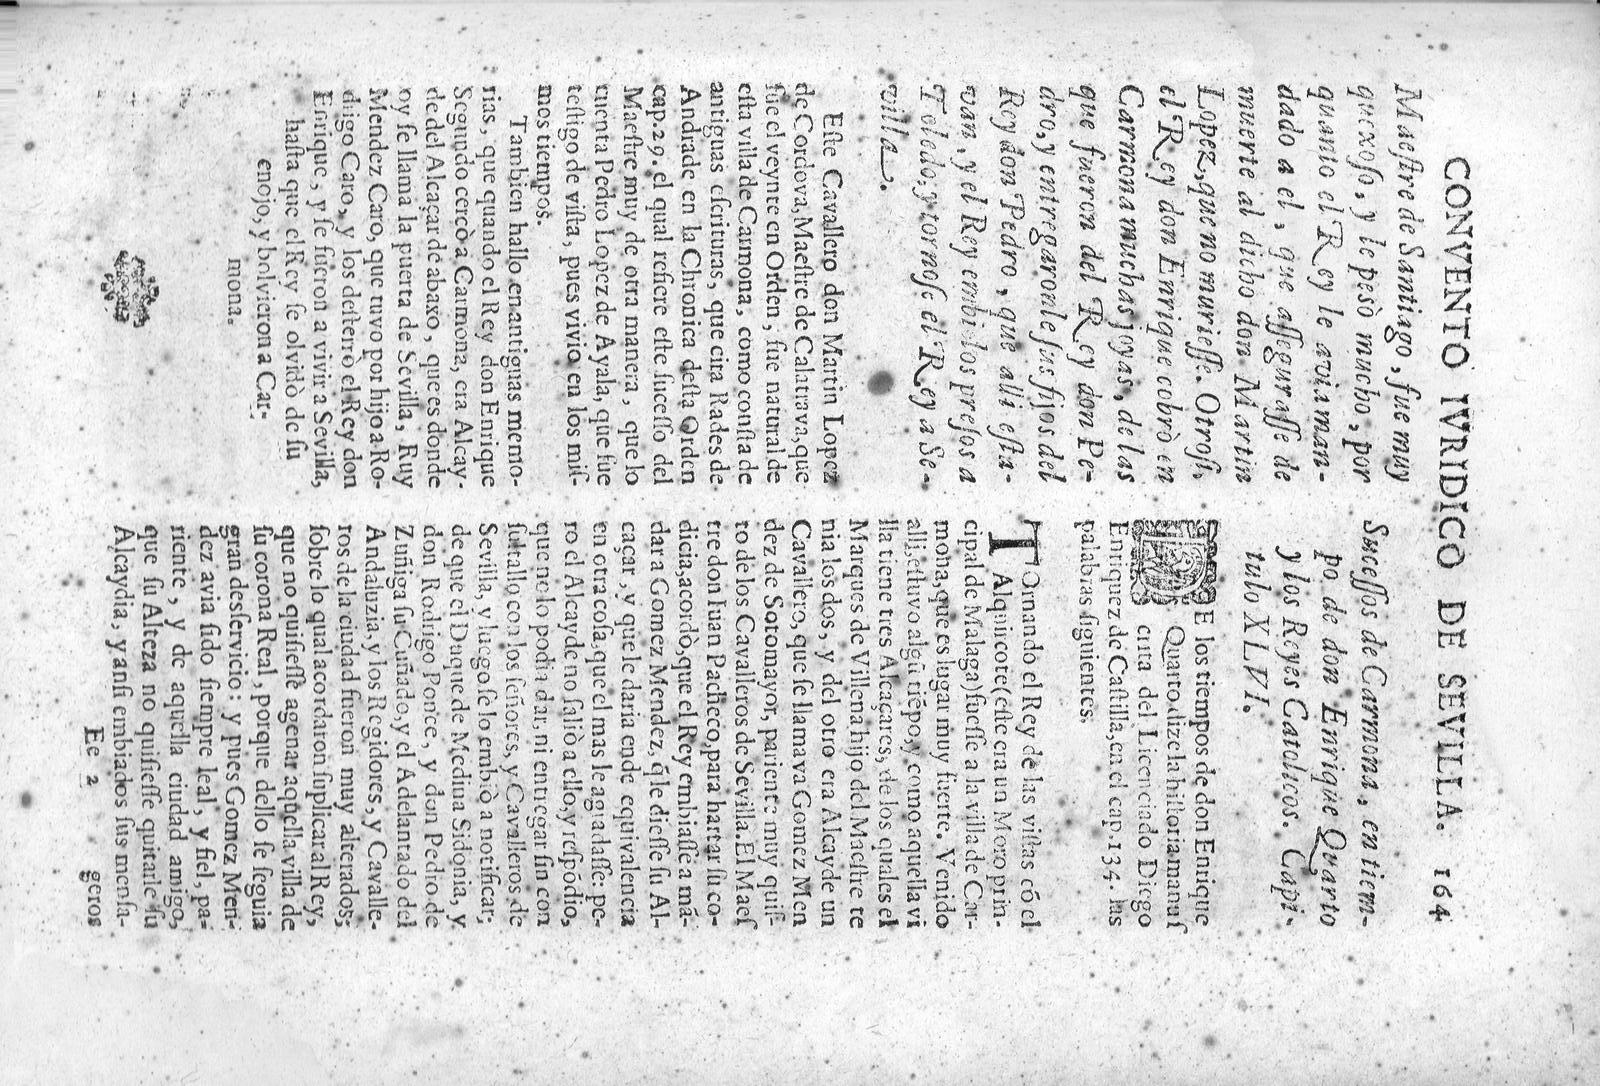 CONVENTO IVRIDICO DE SEVILLA. 164
Maestre de Santiago, fue muy
quexoso, y le pesò mucho, por
quanto el Rey le avia man-
dado a el, que assegurasse de
muerte al dicho don Martin
Lopez, que no muriesse. Otrosi,
el Rey don Enrique cobrò en
Carmona muchas joyas, de las
que fueron del Rey don Pe-
dro, y entregaronle sus fijos del
Rey don Pedro, que alli esta-
van, y el Rey embiolos presos a
Toledo, y tornose el Rey a Se-
villa.
Este Cavallero don Martin Lopez
de Cordova, Maestre de Calatrava, que
fue el veynte en Orden, fue natural de
esta villa de Carmona, como consta de
antiguas escrituras, que cita Rades de
Andrade en la Chronica desta Orden
cap. 29. el qual refiere este sucesso del
Maestre muy de otra manera, que lo
cuenta Pedro Lopez de Ayala, que fue
testigo de vista, pues vivio en los mis-
mos tiempos.
Tambien hallo en antiguas memo-
rias, que quando el Rey don Enrique
Segundo cercò a Carmona, era Alcay-
de del Alcaçar de abaxo, que es donde
oy se llama la puerta de Sevilla, Ruy
Mendez Caro, que tuvo por hijo a Ro-
drigo Caro, y los desterrò el Rey don
Enrique, y se fueron a vivir a Sevilla,
hasta que el Rey se olvidò de su
enojo, y bolvieron a Car-
mona.
Sucessos de Carmona, en tiem-
po de don Enrique Quarto
y los Reyes Catolicos. Capi-
tulo XLVI.
DE los tiempos de don Enrique
Quarto, dize la historia manus
crita del Licenciado Diego
Enriquez de Castilla, en el cap. 134. las
palabras siguientes.
TOrnando el Rey de las vistas cō el
Alquircote (este era un Moro prin-
cipal de Malaga) fuesse a la villa de Car-
mona, que es lugar muy fuerte. Venido
alli, estuvo algū tiēpo, y como aquella vi
lla tiene tres Alcaçares, de los quales el
Marques de Villena hijo del Maestre te
nia los dos, y del otro era Alcayde un
Cavallero, que se llamava Gomez Men
dez de Sotomayor, pariente muy quis-
to de los Cavalleros de Sevilla. El Maes
tre don Iuan Pacheco, para hartar su co-
dicia, acordò, que el Rey embiasse a mā-
dar a Gomez Mendez, q̄ le diesse su Al-
caçar, y que le daria ende equivalencia
en otra cosa, que el mas le agradasse: pe-
ro el Alcayde no saliò a ello, y respōdio,
que ne lo podia dar, ni entregar sin con
sultallo con los señores, y Cavalleros de
Sevilla, y luego se lo embiò a notificar;
de que el Duque de Medina Sidonia, y
don Rodrigo Ponce, y don Pedro de
Zuñiga su Cuñado, y el Adelantado del
Andaluzia, y los Regidores, y Cavalle-
ros de la ciudad fueron muy alterados;
sobre lo qual acordaron suplicar al Rey,
que no quisiesse agenar aquella villa de
su corona Real, porque dello se seguia
gran desservicio: y pues Gomez Men-
dez avia sido siempre leal, y fiel, pa-
riente, y de aquella ciudad amigo,
que su Alteza no quisiesse quitarle su
Alcaydia, y ansi embiados sus mensa-
Ee 2 geros